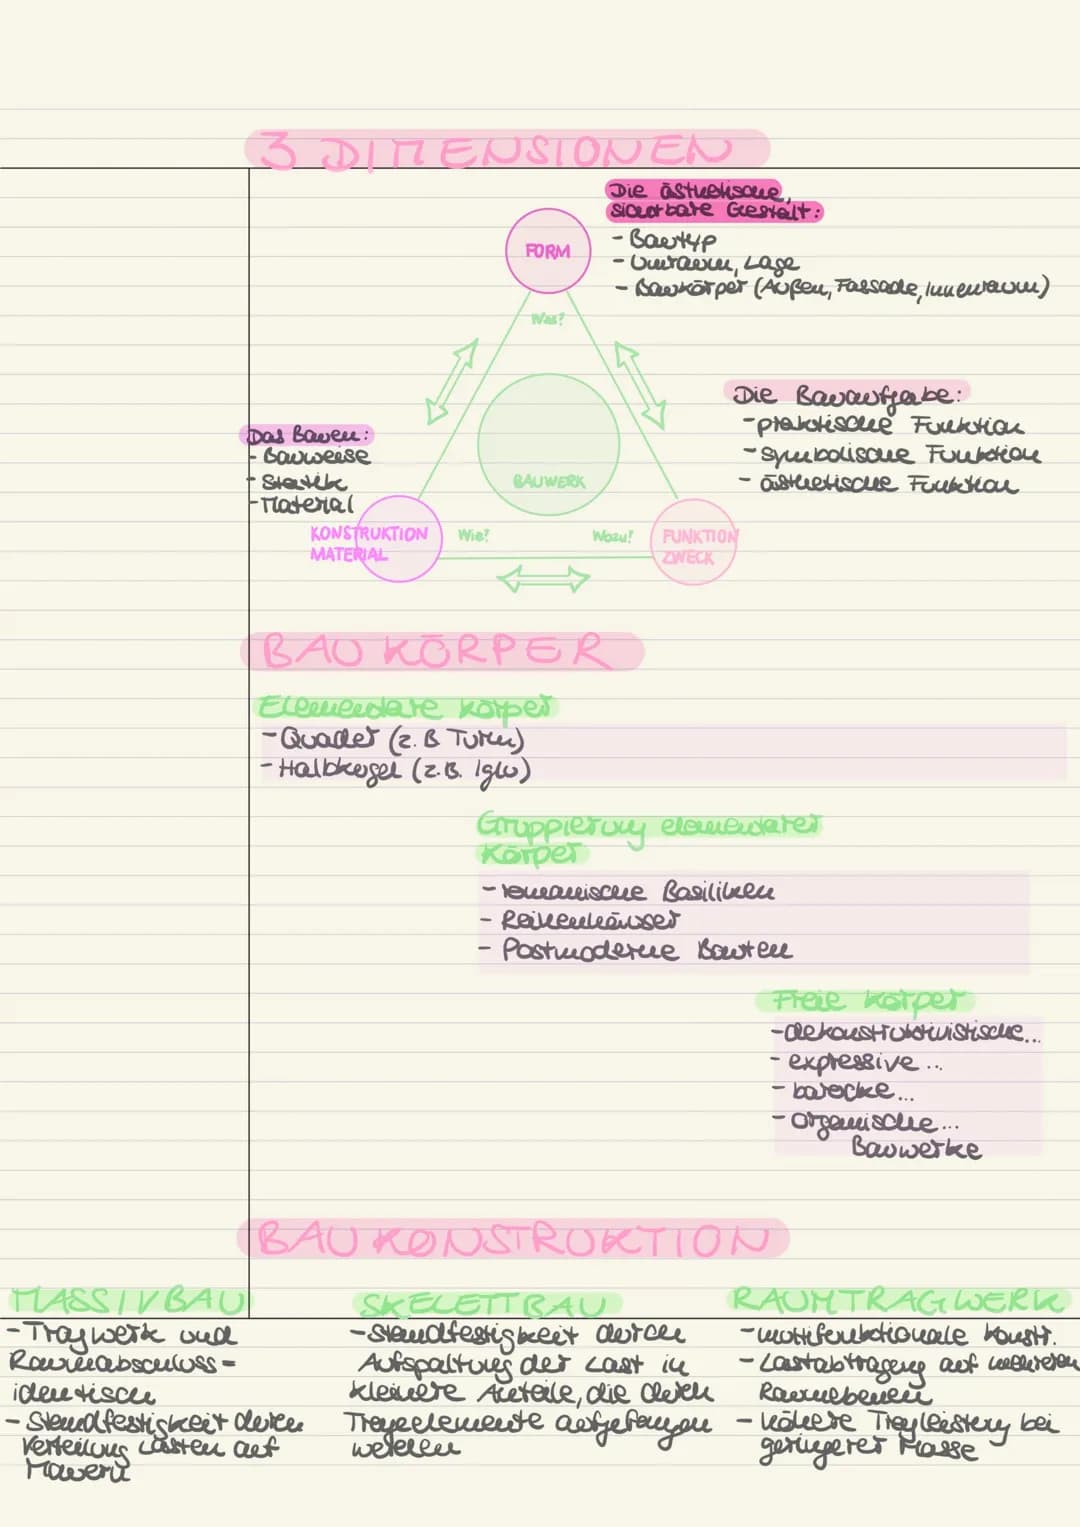 3 DIMENSIONEN
Die ästhetische,
sichtbare Gestalt:
- Bautyp
- Umraum, Lage
- Baukörper (Außen, Fassade, Innenraum)
FORM
Was?
Die Bauaufgabe:
- praktische Funktion
- symbolische Funktion
- ästhetische Funktion
Das Bauen:
- Bauweise
- Statik
- Material
BAUWERK
KONSTRUKTION
MATERIAL
Wie?
Wozu?
FUNKTION
ZWECK
BAUKÖRPER
Elementare Körper
- Quader (z.B Turm)
- Halbkugel (z.B. Iglu)
Gruppierung elementarer
Körper
- romanische Basiliken
- Reihenhäuser
- Postmoderne Bauten
Freie Körper
- dekonstruktivistische...
- expressive...
- barocke...
- organische...
Bauwerke
BAUKONSTRUKTION
MASSIVBAU
- Tragwerk und
Raumabschluss =
identisch
- Standfestigkeit durch
Verteilung Lasten auf
Mauern
SKELETTBAU
- Standfestigkeit durch
Aufspaltung der Last in
kleinere Anteile, die durch
Trageelemente aufgefangen
werden
RAUMTRAGWERK
- multifunktionale Konstr.
- Lastabtragung auf mehreren
Raumebenen
- höhere Tragleistung bei
geringerer Masse